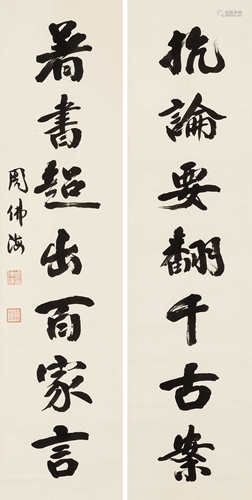 抗論要翻千古案
著書超出百家言
周佛海